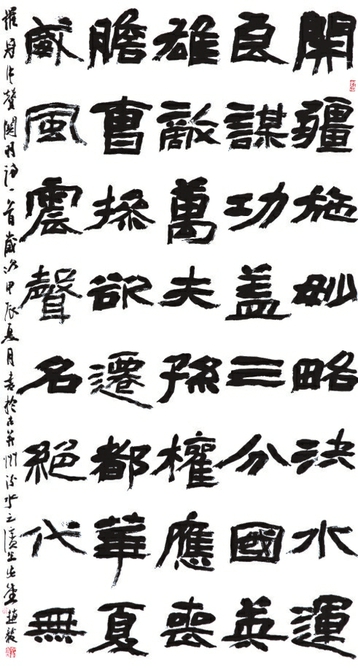 開疆施妙略決水運
良謀功盖三分國英
雄敵萬夫孫權應喪
膽曹操欲遷都華夏
威風震聲名絕代無
贊關羽詩一首歲次甲辰月書於古并州汾水之濱